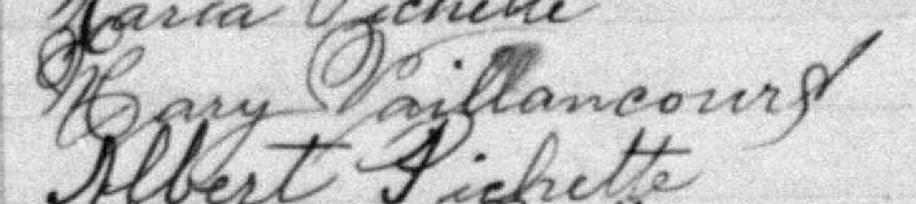 Maria Pichette
Mary Vaillancourt
Albert Pichette